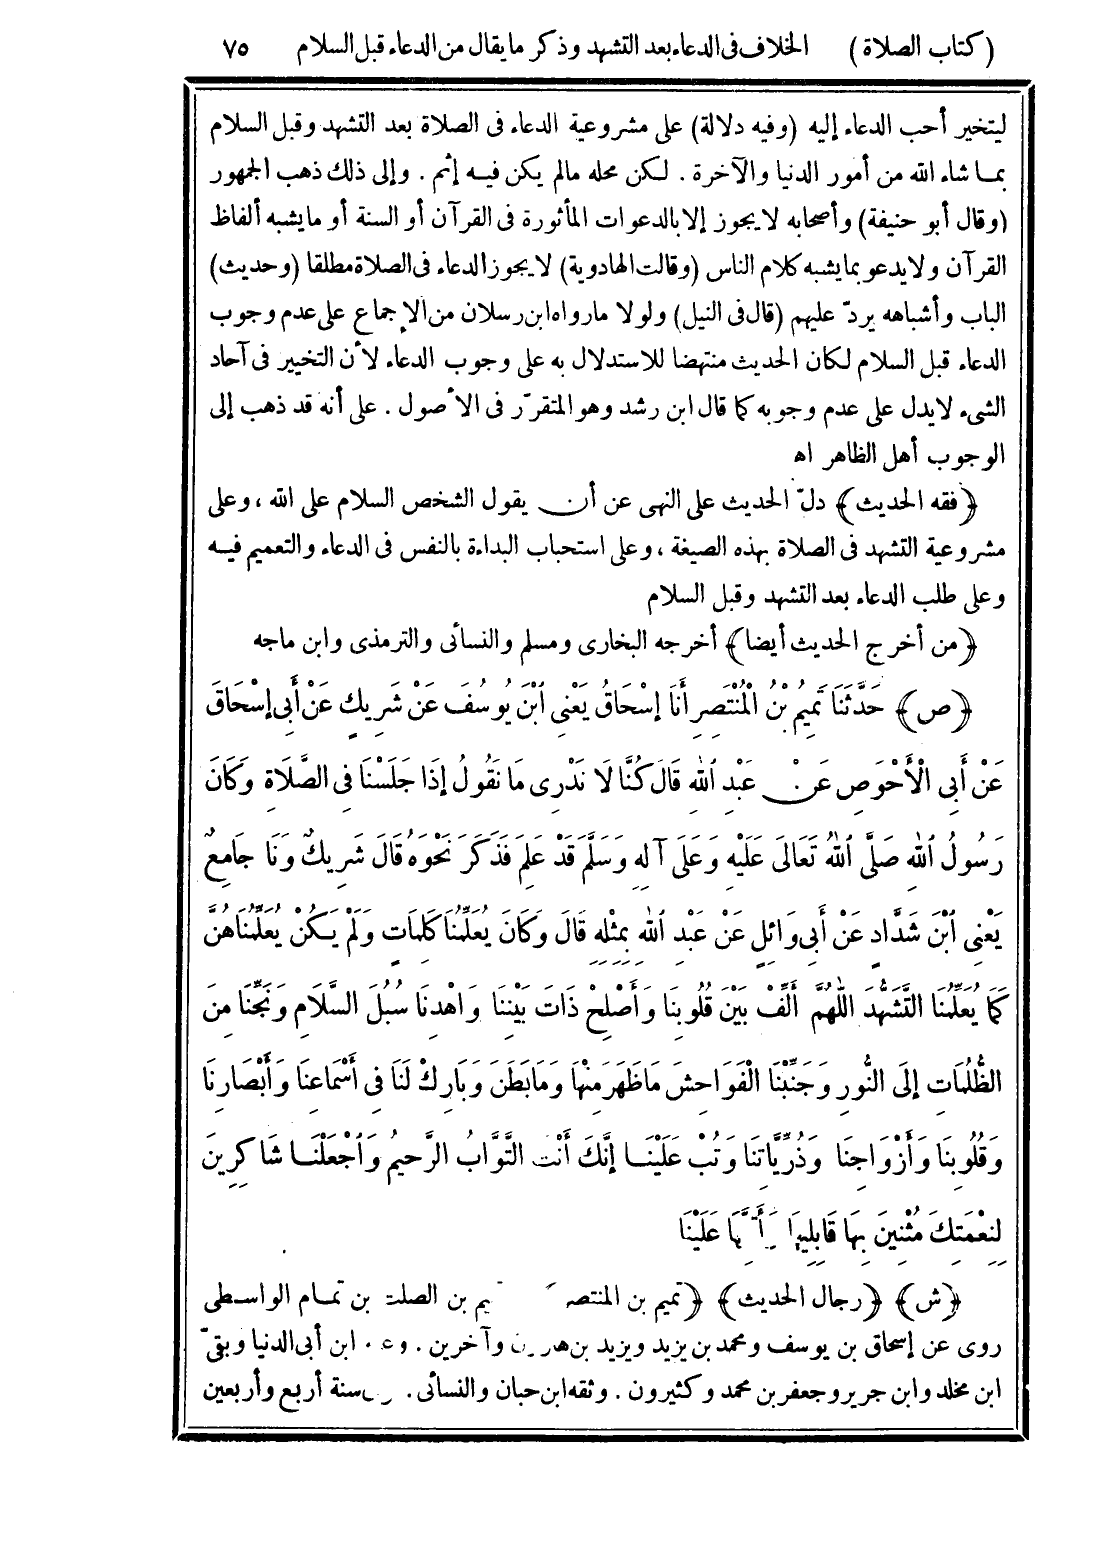 (كتاب الصلاة) الخلاف فى الدعاء بعد التشهد وذكر ما يقال من الدعاء قبل السلام ٧٥
ليتخير أحب الدعاء إليه (وفيه دلالة) على مشروعية الدعاء فى الصلاة بعد التشهد وقبل السلام
بمـا شاء الله من أمور الدنيا والآخرة . لـكن محله مالم يكن فيـه إثم . وإلى ذلك ذهب الجمهور
(وقال أبو حنيفة) وأصحابه لا يجوز إلا بالدعوات المأثورة فى القرآن أو السنة أو ما يشبه ألفاظ
القرآن ولا يدعو بما يشبه كلام الناس (وقالت الهادوية) لا يجوز الدعاء فى الصلاة مطلقا (وحديث)
الباب وأشباهه يردّ عليهم (قال فى النيل) ولولا ما رواه ابن رسلان من الإجماع على عدم وجوب
الدعاء قبل السلام لكان الحديث منتهضا للاستدلال به على وجوب الدعاء لأن التخيير فى آحاد
الشىء لا يدل على عدم وجوبه كما قال ابن رشد وهو المتقرّر فى الأصول . على أنه قد ذهب إلى
الوجوب أهل الظاهر اه
﴿فقه الحديث﴾ دلّ الحديث على النهى عن أن يقول الشخص السلام على الله ، وعلى
مشروعية التشهد فى الصلاة بهذه الصيغة ، وعلى استحباب البداءة بالنفس فى الدعاء والتعميم فيـه
وعلى طلب الدعاء بعد التشهد وقبل السلام
﴿من أخرج الحديث أيضا﴾ أخرجه البخارى ومسلم والنسائى والترمذى وابن ماجه
﴿ص﴾ حَدَّثَنَا تَمِيمُ بْنُ الْمُنْتَصِرِ أَنَا إِسْحَاقُ يَعْنِى ابْنَ يُوسُفَ عَنْ شَرِيكٍ عَنْ أَبِى إِسْحَاقَ
عَنْ أَبِى الْأَحْوَصِ عَنْ عَبْدِ اللهِ قَالَ كُنَّا لَا نَدْرِى مَا نَقُولُ إِذَا جَلَسْنَا فِى الصَّلَاةِ وَكَانَ
رَسُولُ اللهِ صَلَّى اللهُ تَعَالَى عَلَيْهِ وَعَلَى آلِهِ وَسَلَّمَ قَدْ عَلِمَ فَذَكَرَ نَحْوَهُ قَالَ شَرِيكٌ وَنَا جَامِعٌ
يَعْنِى ابْنَ شَدَّادٍ عَنْ أَبِى وَائِلٍ عَنْ عَبْدِ اللهِ بِمِثْلِهِ قَالَ وَكَانَ يُعَلِّمُنَا كَلِمَاتٍ وَلَمْ يَكُنْ يُعَلِّمُنَاهُنَّ
كَمَا يُعَلِّمُنَا التَّشَهُّدَ اللّٰهُمَّ أَلِّفْ بَيْنَ قُلُوبِنَا وَأَصْلِحْ ذَاتَ بَيْنِنَا وَاهْدِنَا سُبُلَ السَّلَامِ وَنَجِّنَا مِنَ
الظُّلُمَاتِ إِلَى النُّورِ وَجَنِّبْنَا الْفَوَاحِشَ مَاظَهَرَ مِنْهَا وَمَا بَطَنَ وَبَارِكْ لَنَا فِى أَسْمَاعِنَا وَأَبْصَارِنَا
وَقُلُوبِنَا وَأَزْوَاجِنَا وَذُرِّيَّاتِنَا وَتُبْ عَلَيْنَـا إِنَّكَ أَنْتَ التَّوَّابُ الرَّحِيمُ وَاجْعَلْنَـا شَاكِرِينَ
لِنِعْمَتِكَ مُثْنِينَ بِهَا قَابِلِيهَا عَلَيْنَا
﴿ش﴾ ﴿رجال الحديث﴾ ﴿تميم بن المنتصر بن الصلت بن تمـام الواسـطى
روى عن إسحاق بن يوسف ومحمد بن يزيد ويزيد بن هارون وآخرين . وعنه ابن أبى الدنيا وبقىّ
ابن مخلد وابن جرير وجعفر بن محمد وكثيرون . وثقه ابن حبان والنسائى . سنة أربع وأربعين